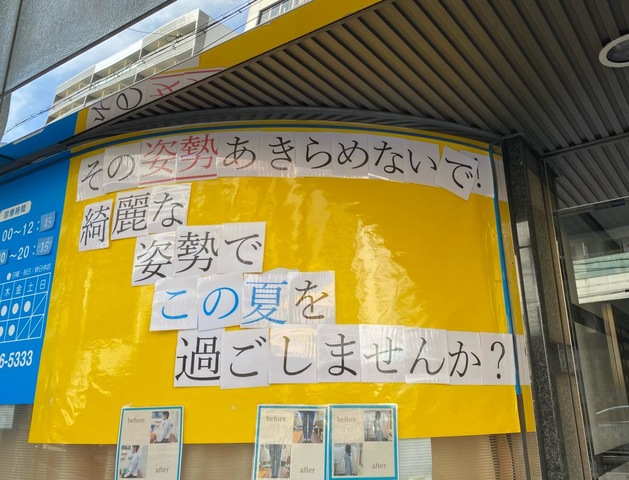 その姿勢あきらめないで!
綺麗な
姿勢で
この夏を
過ごしませんか?
診療時間
00～12:45
20:15
●日曜・祝日・
木金土日
6-5333
before
after
before
after
before
after